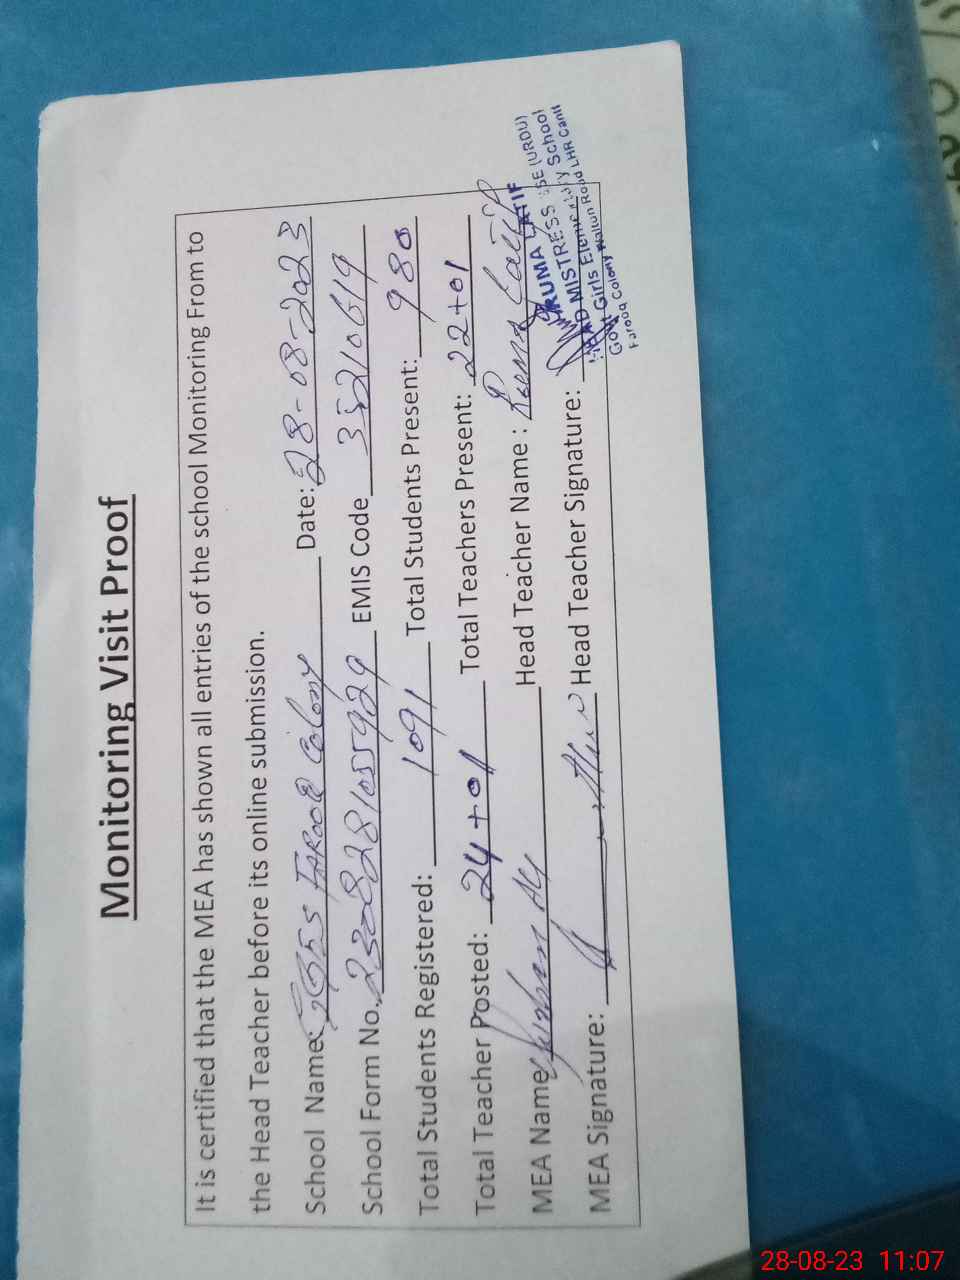 Monitoring Visit Proof
It is certified that the MEA has shown all entries of the school Monitoring From to
the Head Teacher before its online submission.
School Name: GGES FAROOQ Colony Date: 28-08-2023
School Form No. 2308281055929 EMIS Code 35210619
Total Students Registered: 1091 Total Students Present: 980
Total Teacher Posted: 24+01 Total Teachers Present: 22+01
MEA Name Head Teacher Name : Ruma Latif
MEA Signature: Head Teacher Signature:
RUMA LATIF
HEAD MISTRESS SSE (URDU)
Govt Girls Elementary School
Farooq Colony Walton Road LHR Cantt
28-08-23 11:07